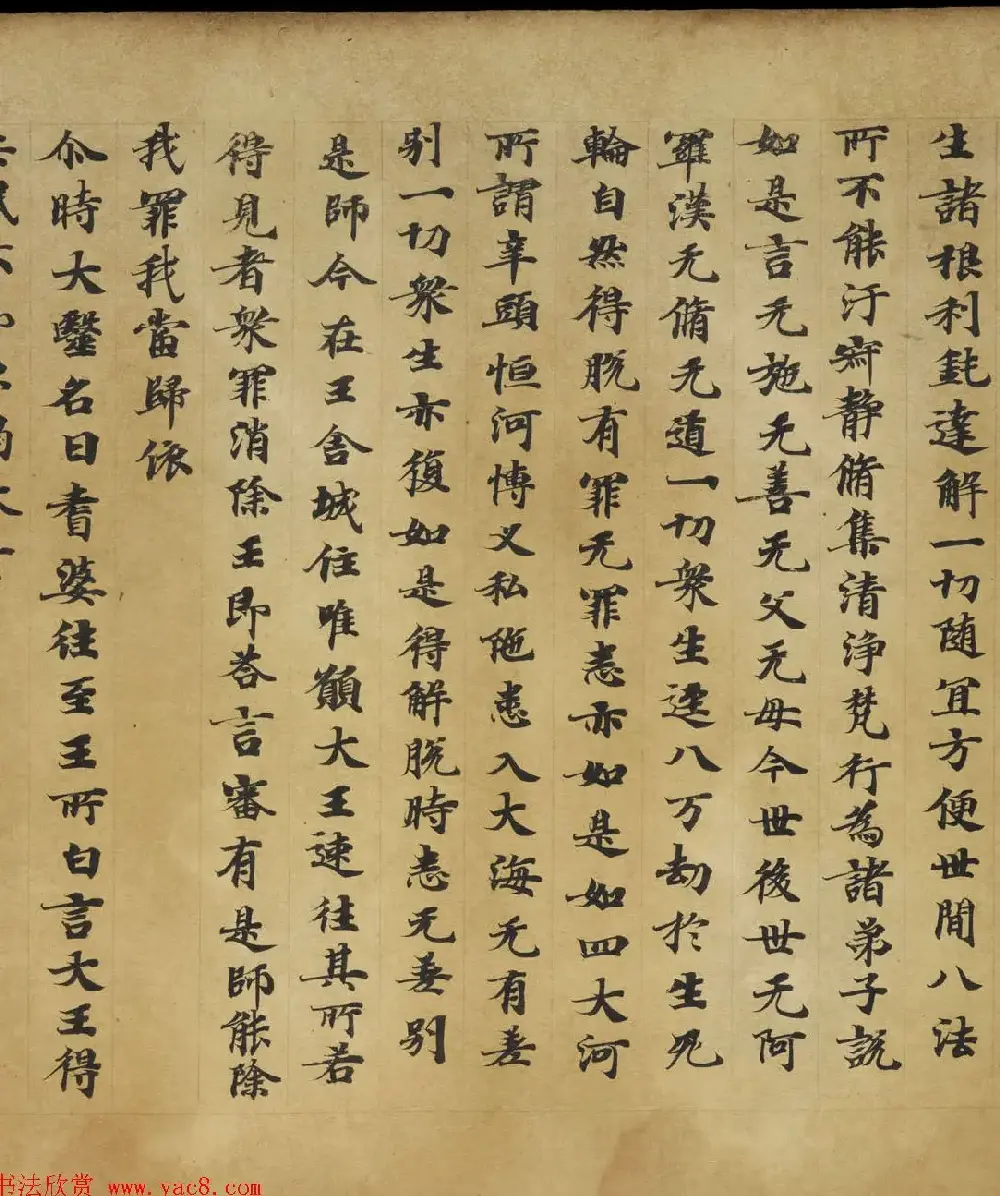 生諸根利鈍達解一切随冝方便世間八法
所不能汙㝛静脩集清浄梵行為諸弟子說
如是言无施无善无父无母今世後世无阿
羅漢无脩无道一切衆生逕八万劫於生死
輪自然得脫有罪无罪悉亦如是如四大河
所謂辛頭恒河愽义私陁悉入大海无有差
别一切衆生亦復如是得解脫時悉无差别
是師今在王舍城住唯願大王速往其所若
得見者衆罪消除王即荅言審有是師能除
我罪我當歸依
尒時大毉名曰耆婆往至王所白言大王得
书法欣赏 www.yac8.com